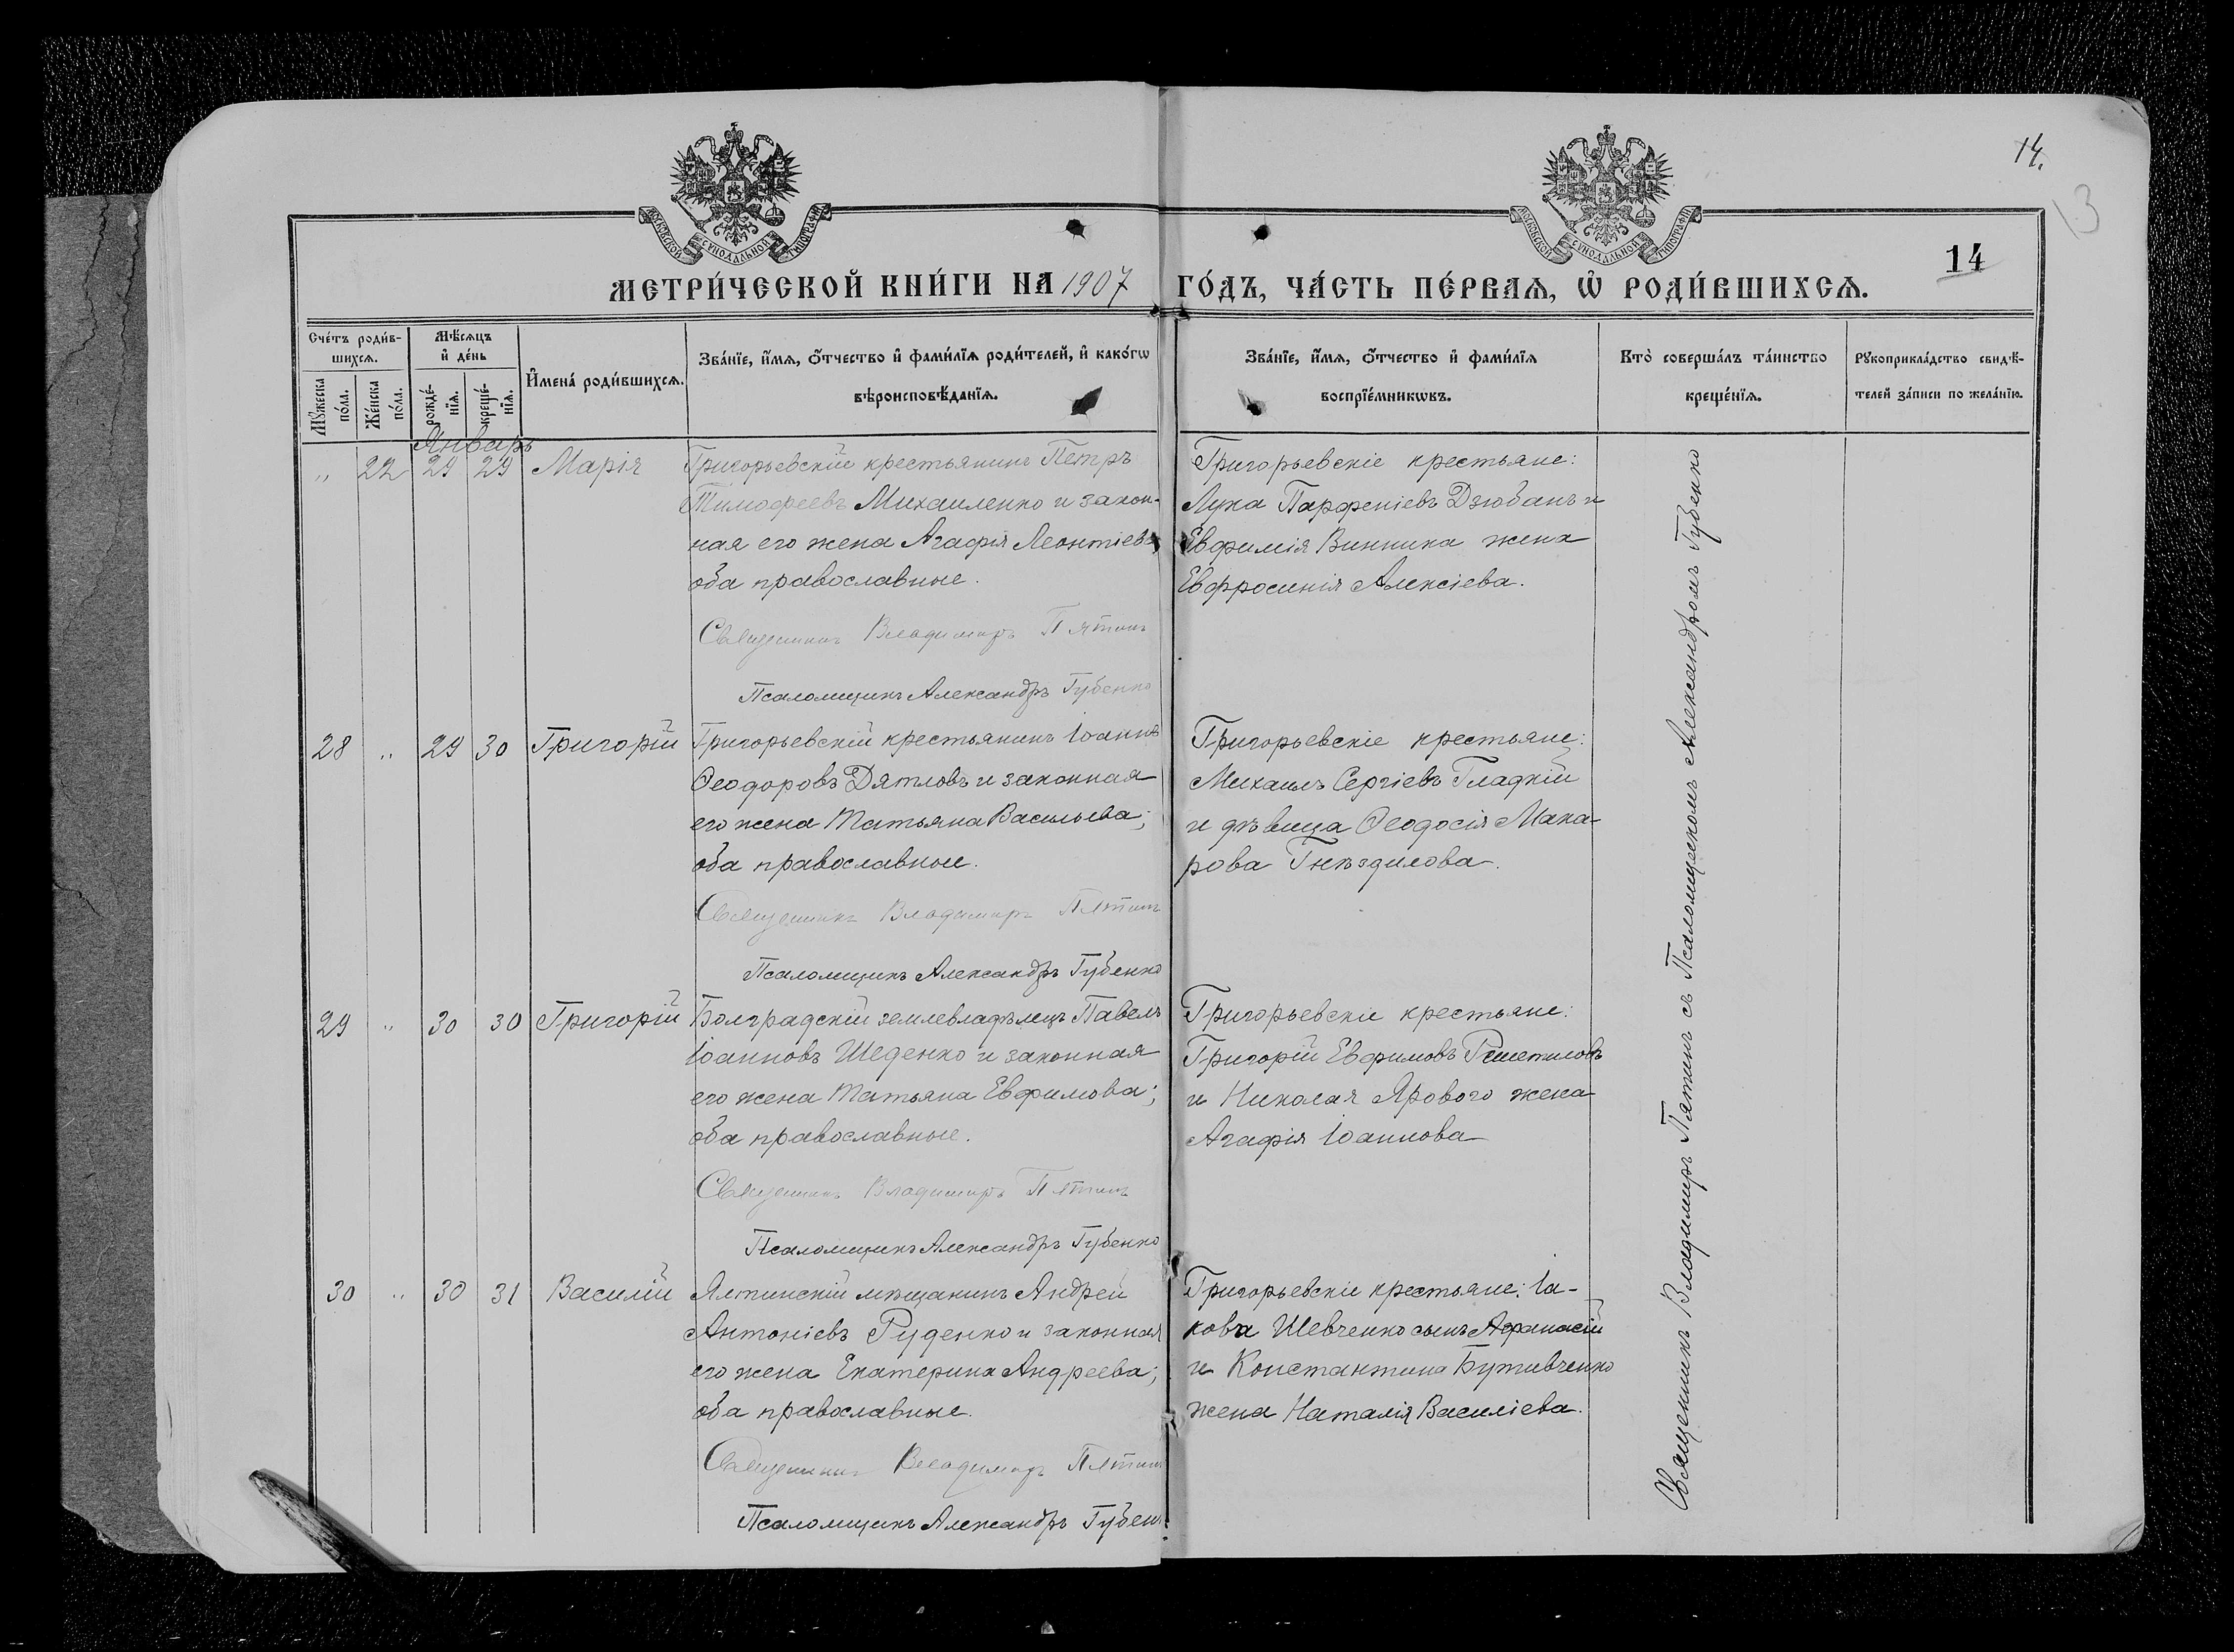 14.
13
МОСКОВСКОЙ СѴНОДАЛЬНОЙ ТИПОГРАФІИ
МОСКОВСКОЙ СѴНОДАЛЬНОЙ ТИПОГРАФІИ
14
МЕТРИ́ЧЕСКОЙ КНИ́ГИ НА 1907 ГО́ДЪ, ЧА́СТЬ ПЕ́РВАѦ, Ѡ҆ РОДИ́ВШИХСѦ.
Сче́тъ роди́в-
шихсѧ.
Мꙋ́жеска
по́ла.
Же́нска
по́ла.
Мѣ́сѧцъ
и҆ де́нь
рожде́-
нїѧ.
креще́-
нїѧ.
И҆мена̀ роди́вшихсѧ.
Зва́нїе, и҆́мѧ, ѻ҆́тчество и҆ фами́лїѧ роди́телей, и҆ како́гѡ
вѣроисповѣ́данїѧ.
Зва́нїе, и҆́мѧ, ѻ҆́тчество и҆ фами́лїѧ
воспрїе́мникѡвъ.
Кто̀ соверша́лъ та́инство
креще́нїѧ.
Рꙋкоприкла́дство свидѣ́-
телей за́писи по жела́нїю.
Январь
" 22 29 29 Марія
Григорьевскій крестьянинъ Петръ
Тимофеевъ Михаиленко и закон-
ная его жена Агафія Леонтіева
оба православные.
Священникъ Владимиръ Пятинъ
Псаломщикъ Александръ Губенко
Григорьевскіе крестьяне:
Лука Парфеніевъ Дзюбанъ и
Евфимія Винника жена
Евфросинія Алексіева.
28 " 29 30 Григорій
Григорьевскій крестьянинъ Іоаннъ
Ѳеодоровъ Дятловъ и законная
его жена Татьяна Васильева;
оба православные.
Священникъ Владимиръ Пятинъ
Псаломщикъ Александръ Губенко
Григорьевскіе крестьяне:
Михаилъ Сергіевъ Гладкій
и дѣвица Ѳеодосія Мака-
рова Гнѣздилова.
29 " 30 30 Григорій
Болградскій землевладѣлецъ Павелъ
Іоанновъ Шеденко и законная
его жена Татьяна Евфимова;
оба православные.
Священникъ Владимиръ Пятинъ
Псаломщикъ Александръ Губенко
Григорьевскіе крестьяне:
Григорій Евфимовъ Решетиловъ
и Николая Ярового жена
Агафія Іоаннова
30 " 30 31 Василій
Ялтинскій мѣщанинъ Андрей
Антоніевъ Руденко и законная
его жена Екатерина Андреева;
оба православные.
Священникъ Владимиръ Пятинъ
Псаломщикъ Александръ Губен
Григорьевскіе крестьяне: Іа-
кова Шевченко сынъ Афанасій
и Константина Бутивченко
жена Наталія Василіева.
Священникъ Владимиръ Пятинъ съ Псаломщикомъ Александромъ Губенко